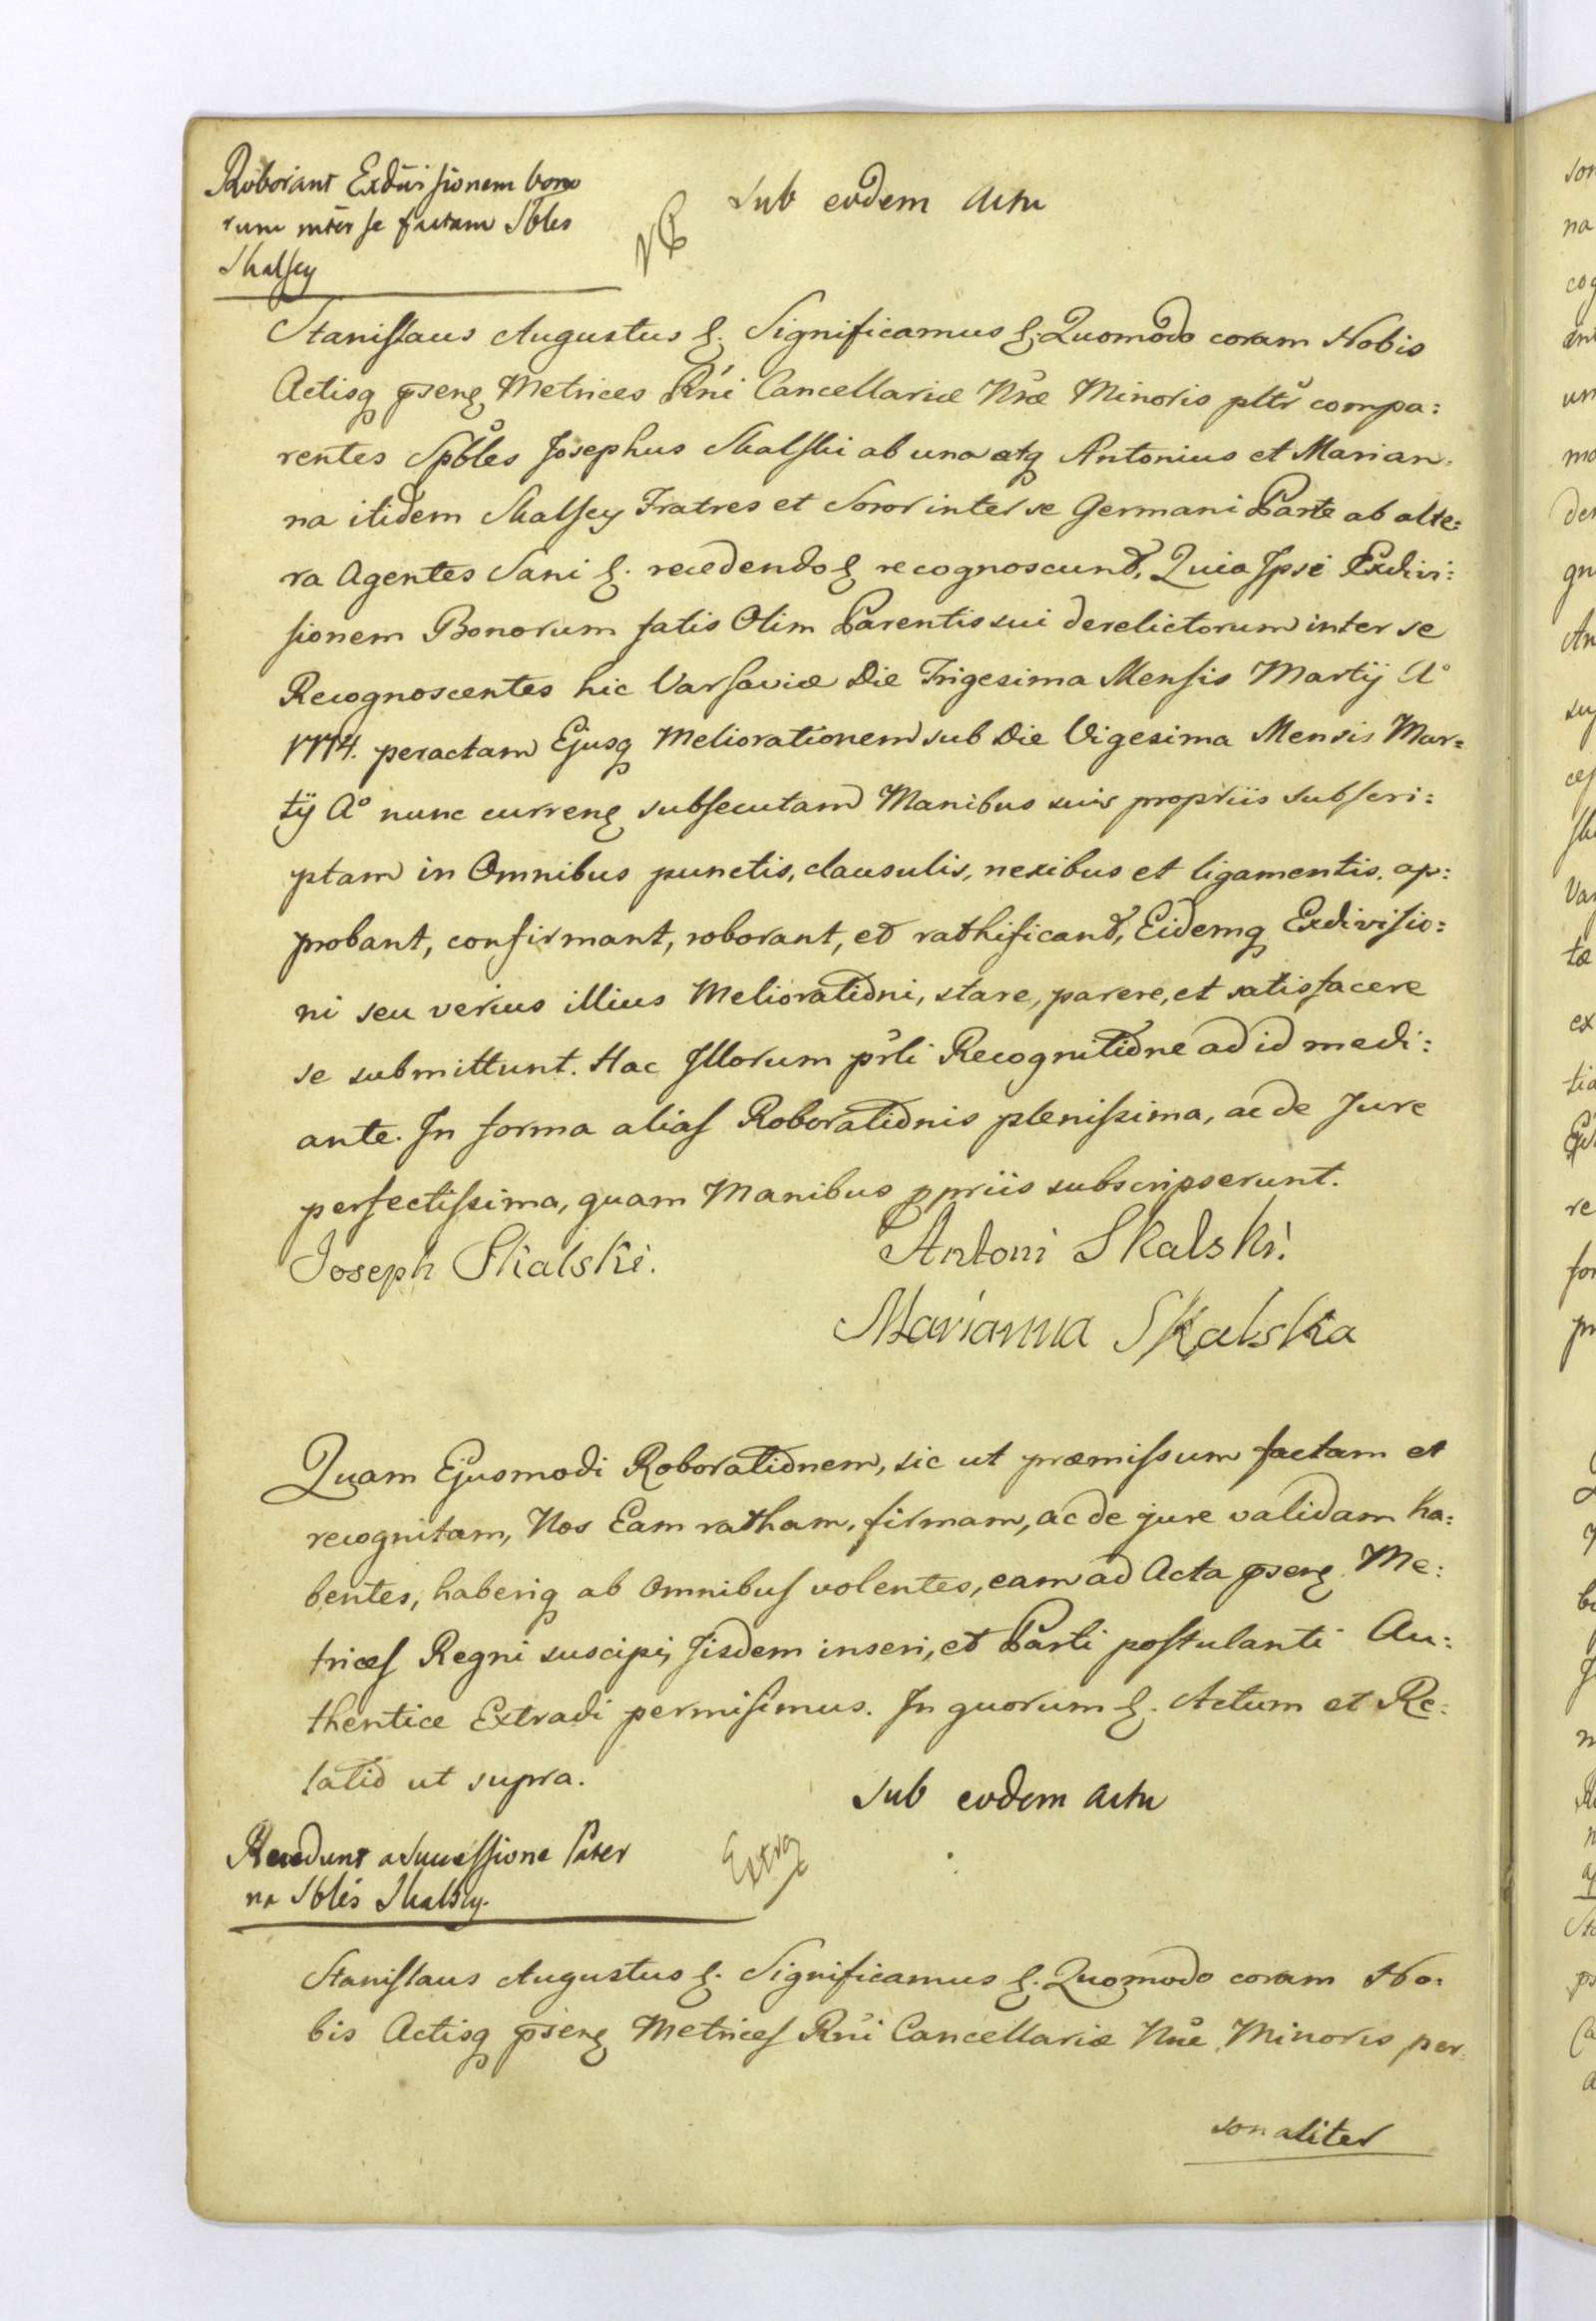 Roborant Exdivisionem bono
rum inter se factam Sbles
Skalscy
NB
Sub eodem Actu
Stanislaus Augustus &. Significamus &. Quomodo coram Nobis
Actisq pseng Metrices Rni Cancellariæ Nræ Minoris pltr compa:
rentes Spbles Josephus Skalski ab una atq Antonius et Marian:
na itidem Skalscy Fratres et Soror inter se Germani Parte ab alte:
ra Agentes Sani &. recedendo & recognoscunt, Quia Ipsi Exdivi:
sionem Bonorum fatis Olim Parentis sui derelictorum inter se
Recognoscentes hic Varsaviæ Die Trigesima Mensis Martij Aº
1774. peractam Ejusq Meliorationem sub Die Vigesima Mensis Mar=
tij Aº nunc curreng subsecutam Manibus suis propriis subscri:
ptam in Omnibus punctis, clausulis, nexibus et ligamentis. ap:
probant, confirmant, roborant, et rathificant, Eidemq Exdivisio:
ni seu verius illius Meliorationi, stare, parere, et satisfacere
se submittunt. Hac Illorum prli Recognitione ad id medi:
ante. In forma alias Roborationis plenissima, ac de Jure
perfectissima, quam Manibus ppriis subscripserunt.
Joseph Skalski.
Antoni Skalski.
Marianna Skalska
Quam Ejusmodi Roborationem, sic ut præmissum factam et
recognitam, Nos Eam ratham, firmam, ac de jure validam ha:
bentes, haberiq ab Omnibus volentes, eam ad Acta pseng Me:
trices Regni suscipi, Iisdem inseri, et Parti postulanti Au:
thentice Extradi permisimus. In quorum &. Actum et Re:
latio ut supra.
Sub eodem Actu
Recedunt a Successione Pater
na Sbles Skalscy.
Extra
Stanislaus Augustus &. Significamus &. Quomodo coram No:
bis Actisq pseng Metrices Rni Cancellariæ Nræ Minoris per:
sonaliter